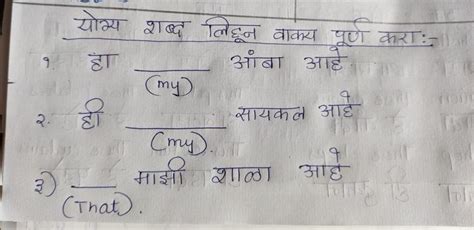 योग्य शब्द लिहून वाक्य पूर्ण करा:-
१. हा ______ आंबा आहे
(my)
२. ही ______ सायकल आहे
(my).
३) ___ माझी शाळा आहे
(That).